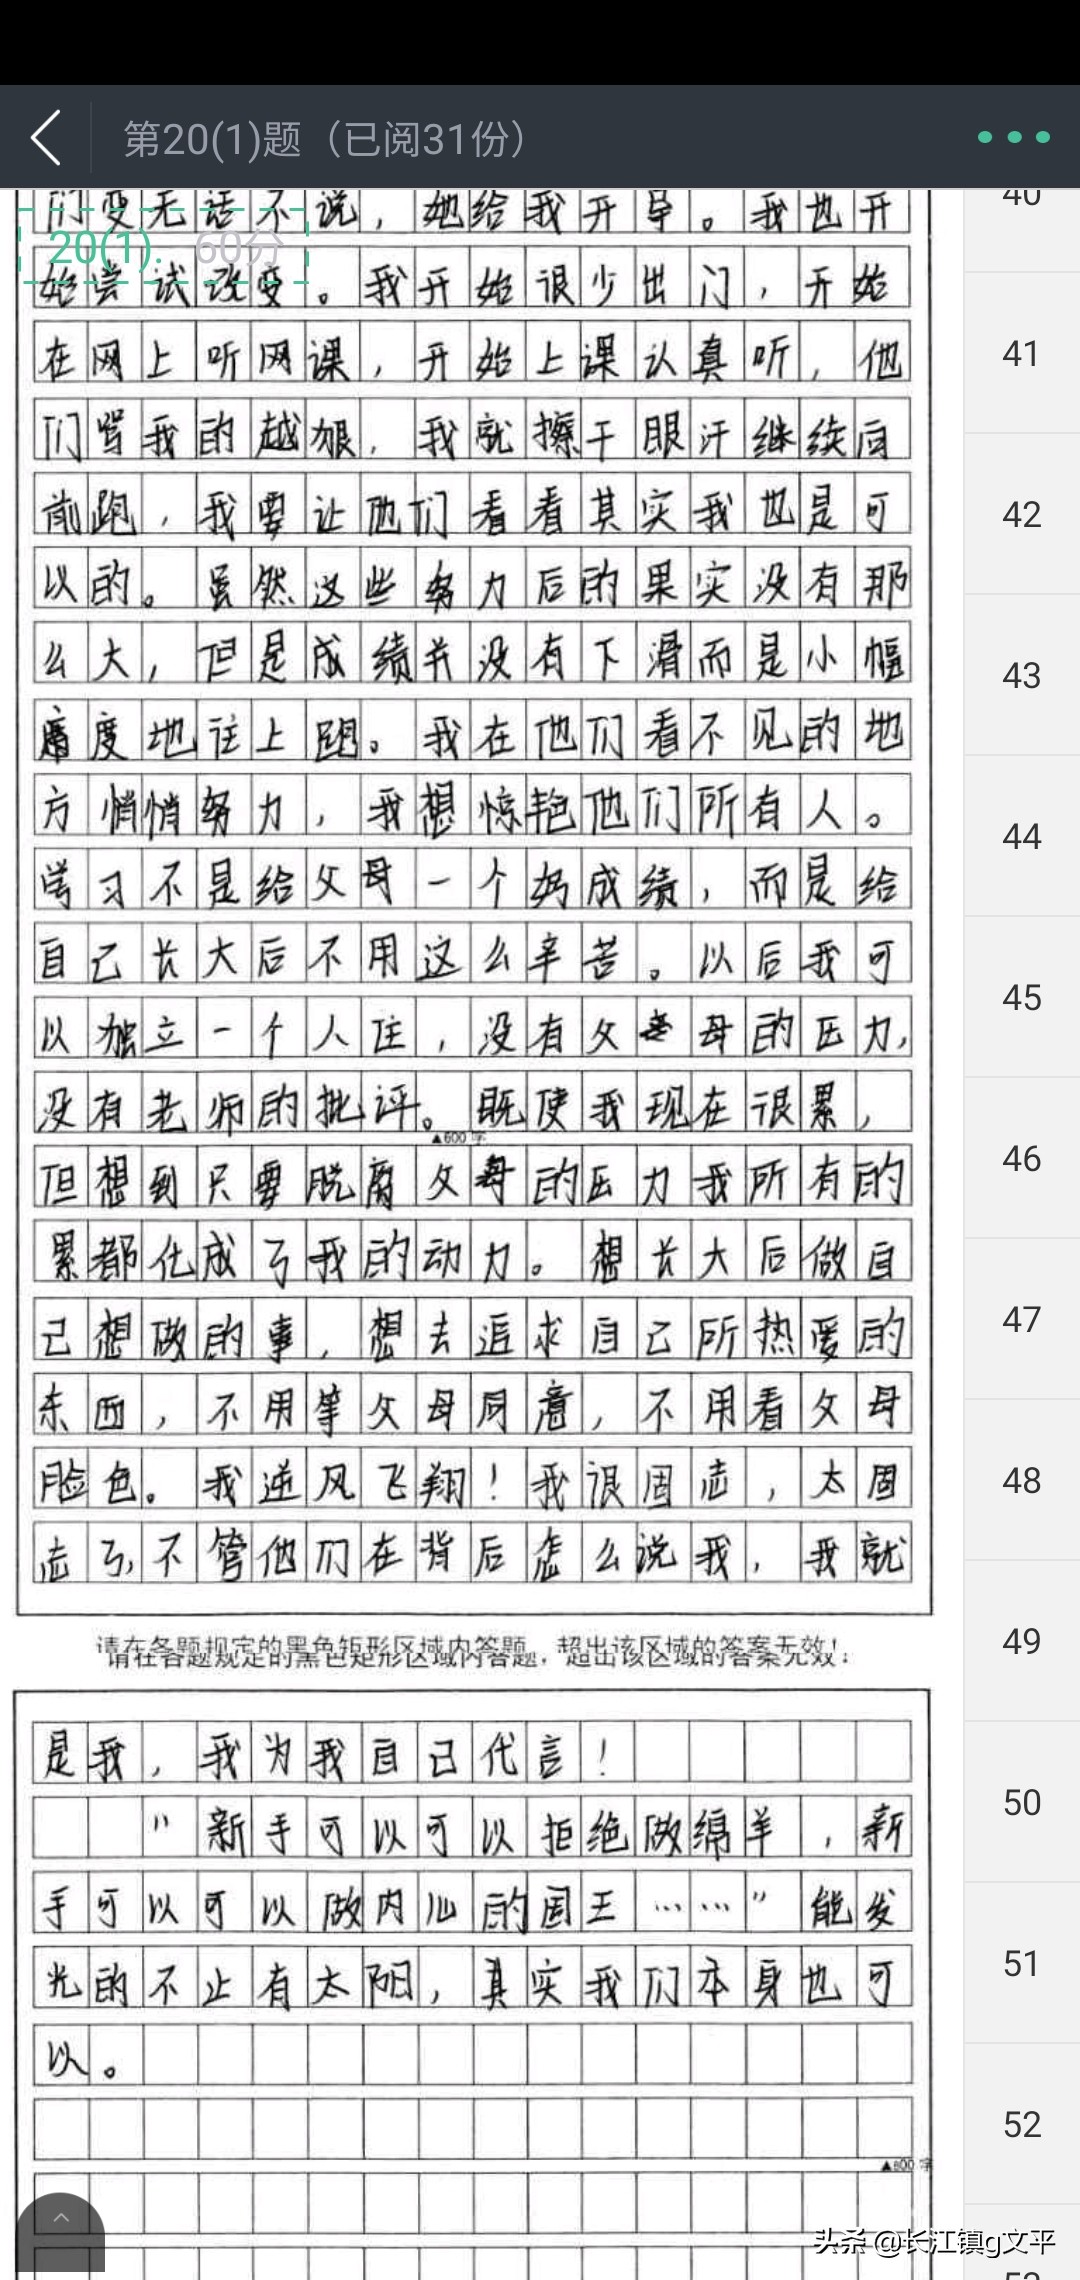 第20(1)题（已阅31份）
们变无话不说，她给我开导。我也开
20(1). 60分
始尝试改变。我开始很少出门，开始
在网上听网课，开始上课认真听，他
们骂我的越狠，我就擦干眼汗继续向
前跑，我要让他们看看其实我也是可
以的。虽然这些努力后的果实没有那
么大，但是成绩并没有下滑而是小幅
度地往上跑。我在他们看不见的地
方悄悄努力，我想惊艳他们所有人。
学习不是给父母一个好成绩，而是给
自己长大后不用这么辛苦。以后我可
以独立一个人住，没有父母的压力，
没有老师的批评。既使我现在很累，
▲600字
但想到只要脱离父母的压力我所有的
累都化成了我的动力。想长大后做自
己想做的事，想去追求自己所热爱的
东西，不用等父母同意，不用看父母
脸色。我逆风飞翔！我很固志，太固
志了，不管他们在背后怎么说我，我就
请在各题规定的黑色矩形区域内答题，超出该区域的答案无效！
是我，我为我自己代言！
"新手可以可以拒绝做绵羊，新
手可以可以做内心的国王……"能发
光的不止有太阳，真实我们本身也可
以。
▲800字
40
41
42
43
44
45
46
47
48
49
50
51
52
头条 @长江镇g文平